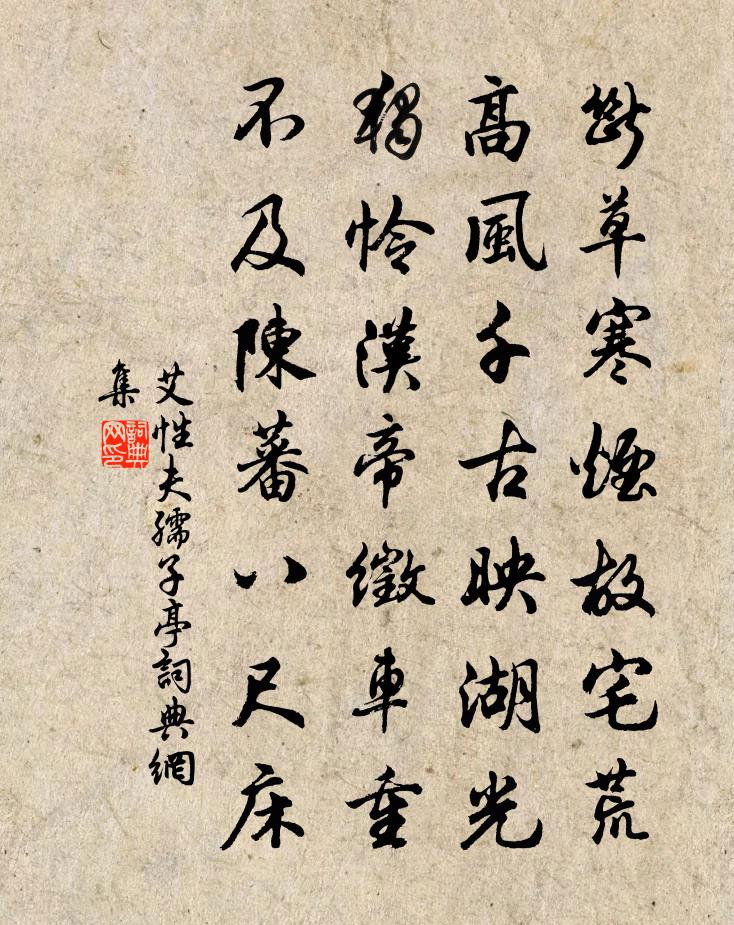 斷草寒煙故宅荒
高風千古映湖光
獨憐漢帝徵車重
不及陳蕃八尺床
艾性夫孺子亭詞典網
集
詞典
网印